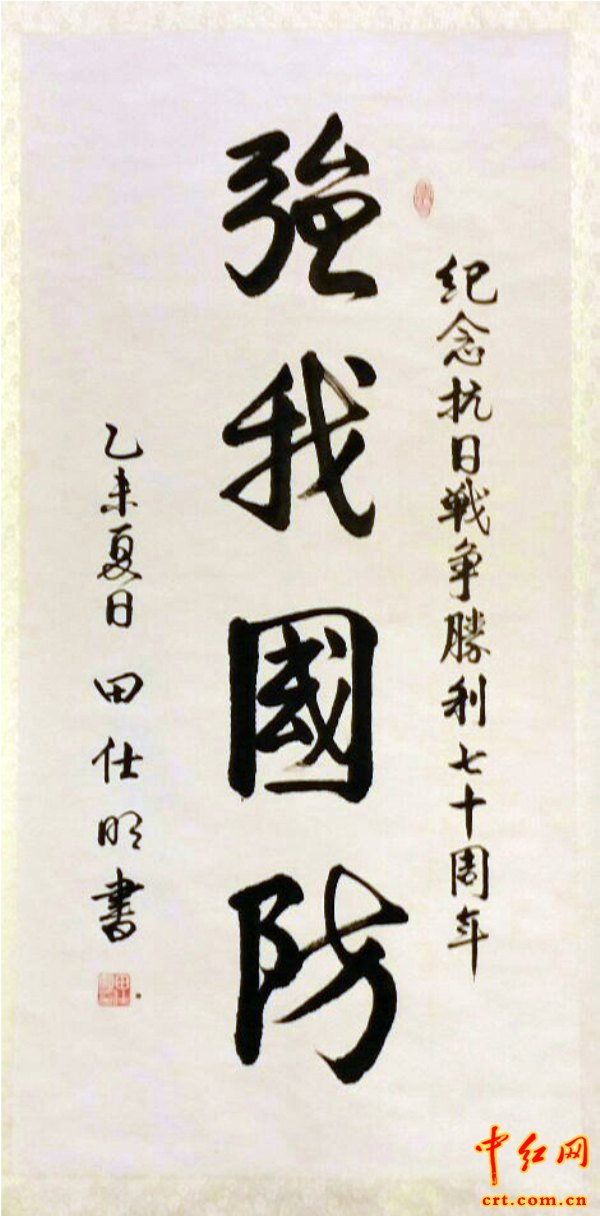 纪念抗日戦争勝利七十周年
强我國防
乙未夏日 田仕明書
中红网
crt.com.cn